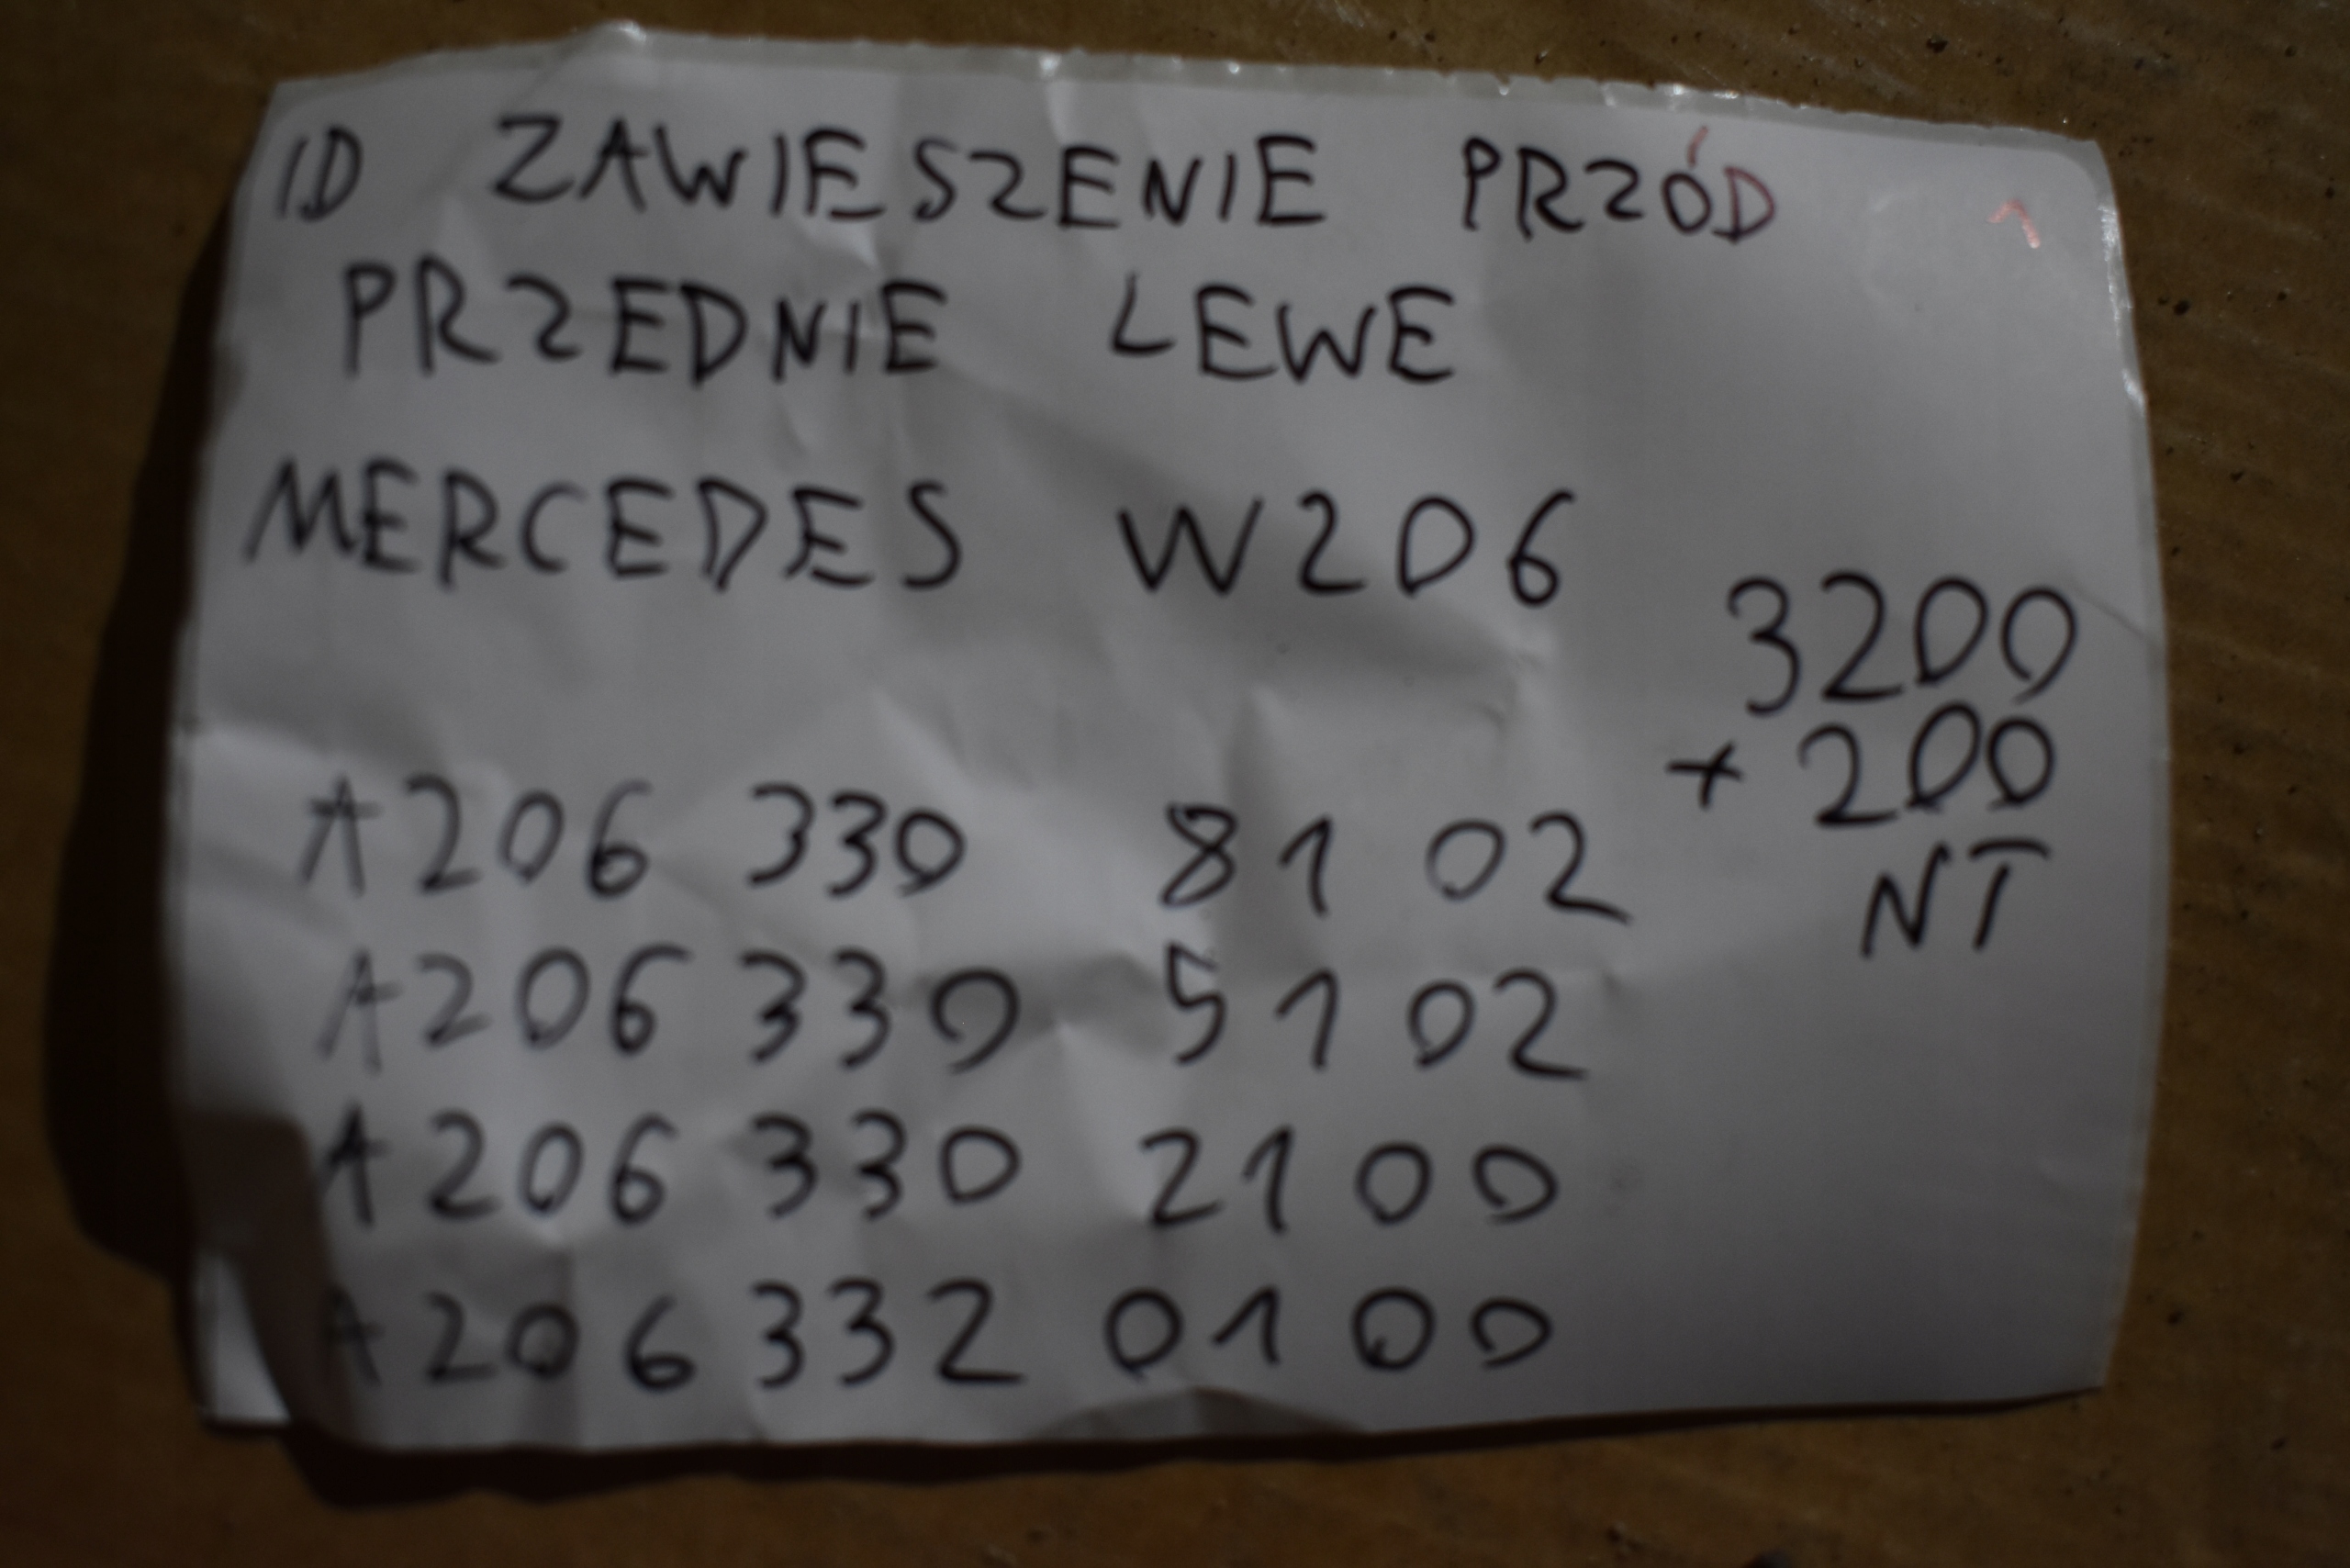 ID ZAWIESZENIE PRZÓD
PRZEDNIE LEWE
MERCEDES W206
3200
+ 200
NT
A206 330 81 02
A206 330 51 02
A206 330 2100
A206 332 0100